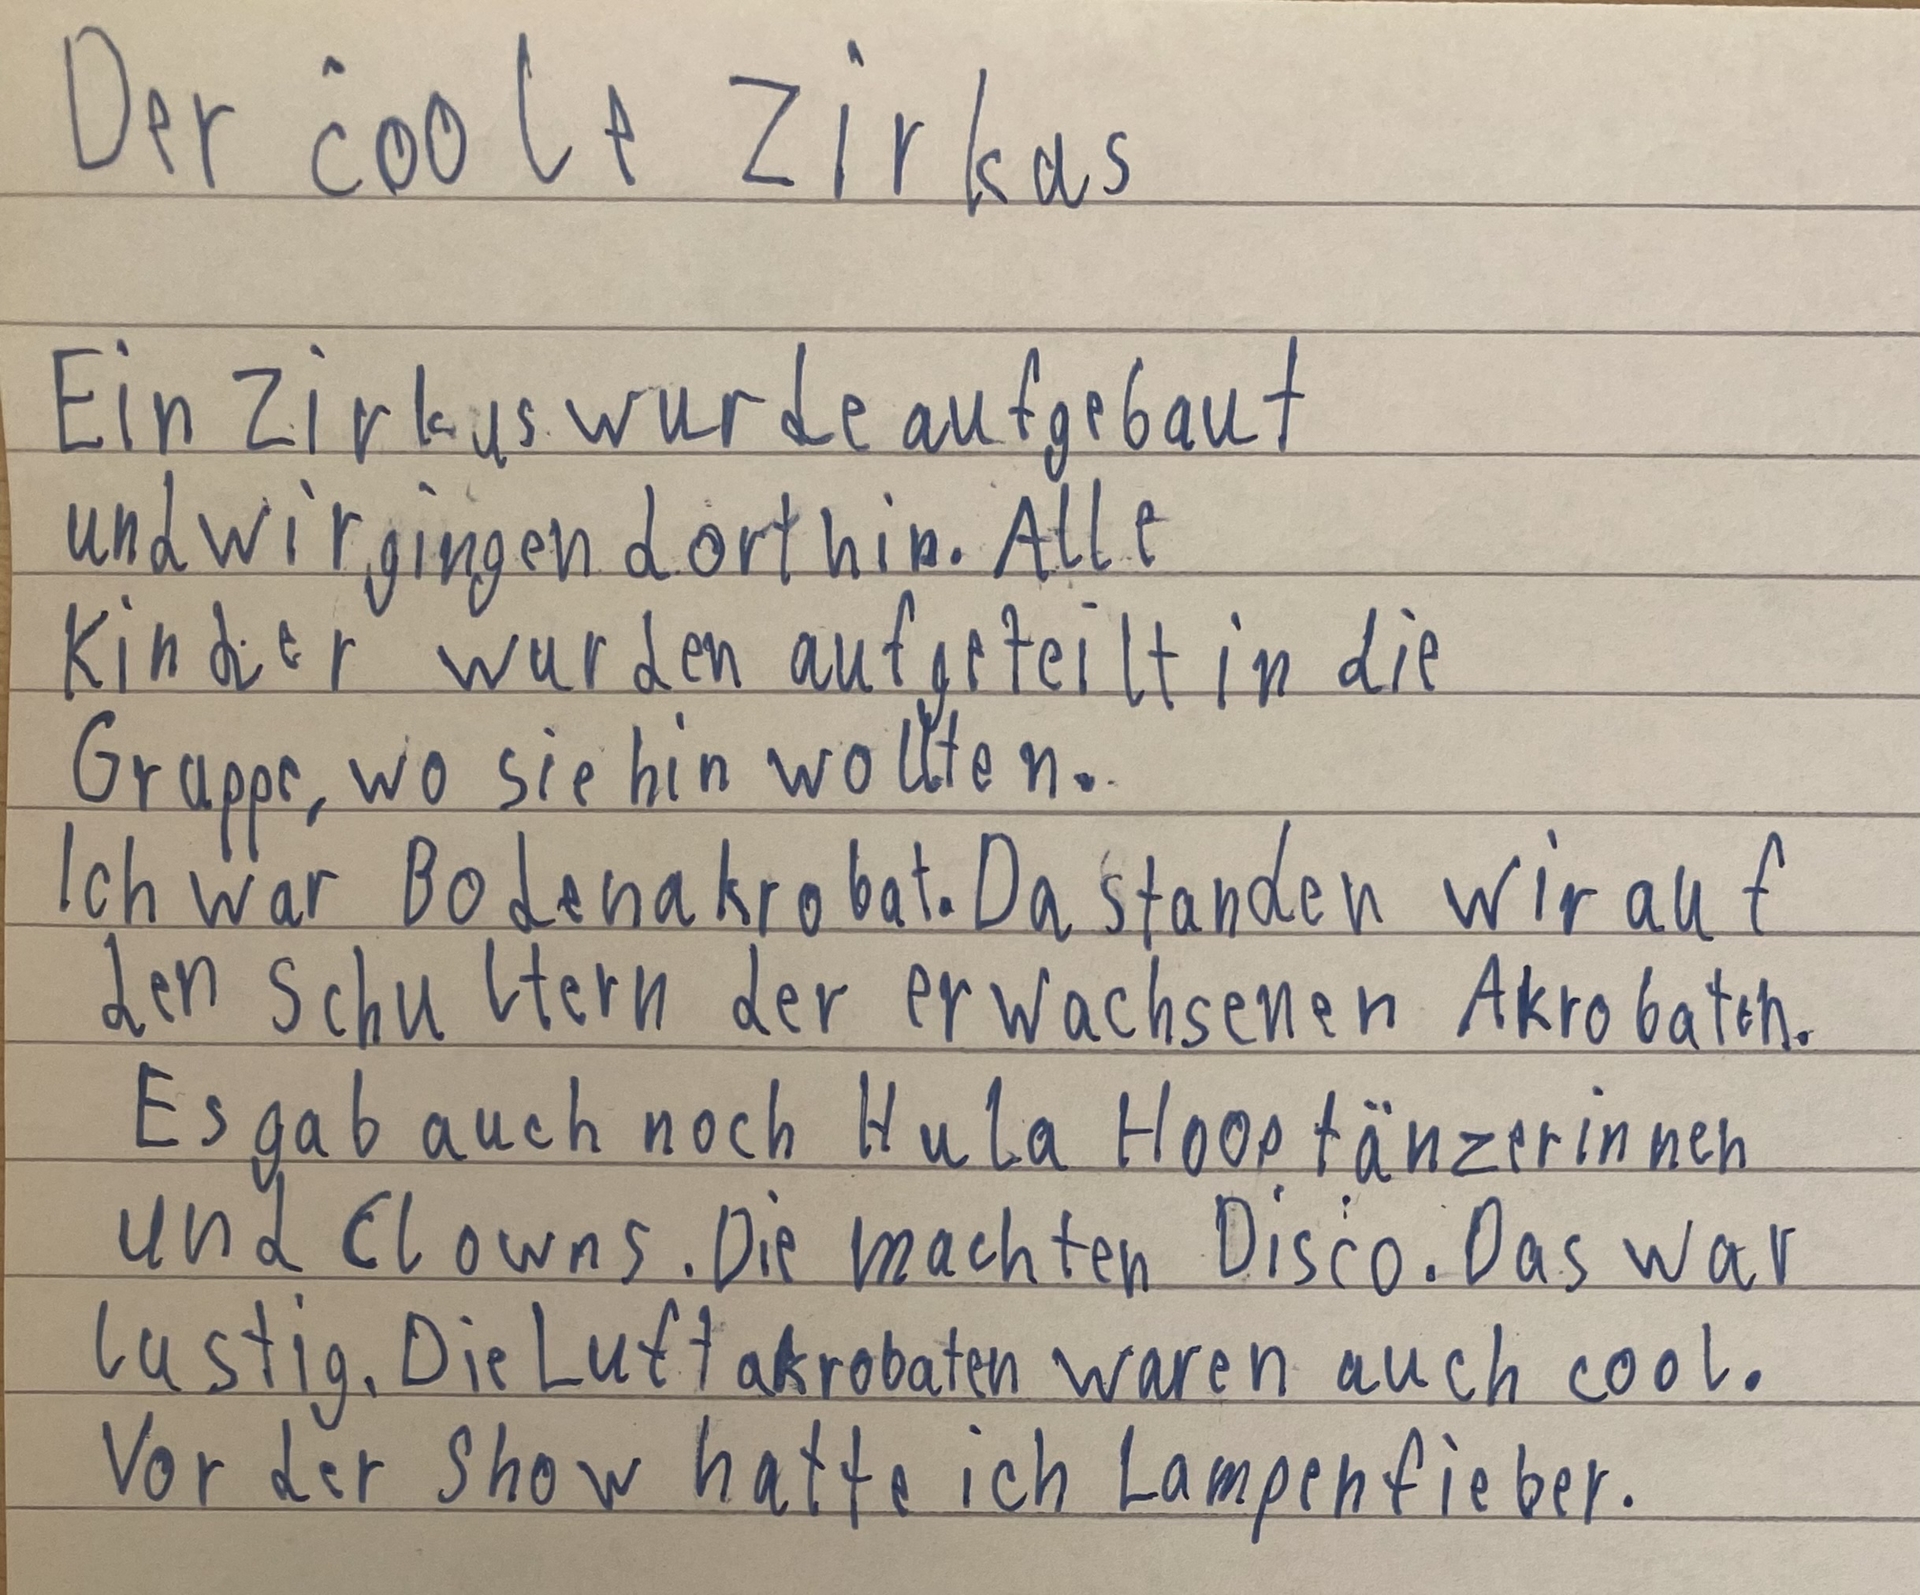 Der coole Zirkus
Ein Zirkus wurde aufgebaut
und wir gingen dorthin. Alle
Kinder wurden aufgeteilt in die
Gruppe, wo sie hin wollten.
Ich war Bodenakrobat. Da standen wir auf
den Schultern der erwachsenen Akrobaten.
Es gab auch noch Hula Hooptänzerinnen
und Clowns. Die machten Disco. Das war
lustig. Die Luftakrobaten waren auch cool.
Vor der Show hatte ich Lampenfieber.